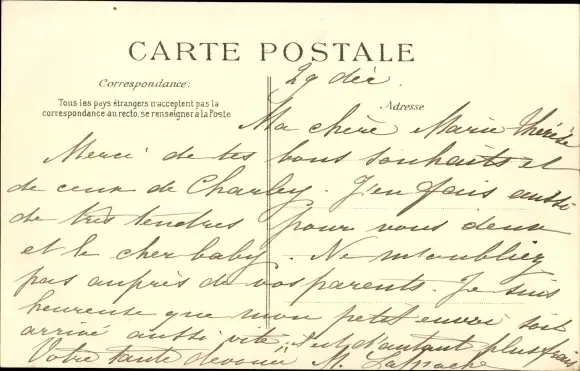 CARTE POSTALE
29 déc.
Correspondance:
Tous les pays étrangers n'acceptent pas la
correspondance au recto, se renseigner à la Poste
Adresse
Ma chère Marie Thérèse
Merci de tes bons souhaits et
de ceux de Charley. J'en fais aussi
de très tendres pour vous deux
et le cher baby. Ne m'oubliez
pas auprès de vos parents. Je suis
heureuse que mon petit envoi soit
arrivé aussi vite, d'autant plus frais
Votre tante dévouée M.